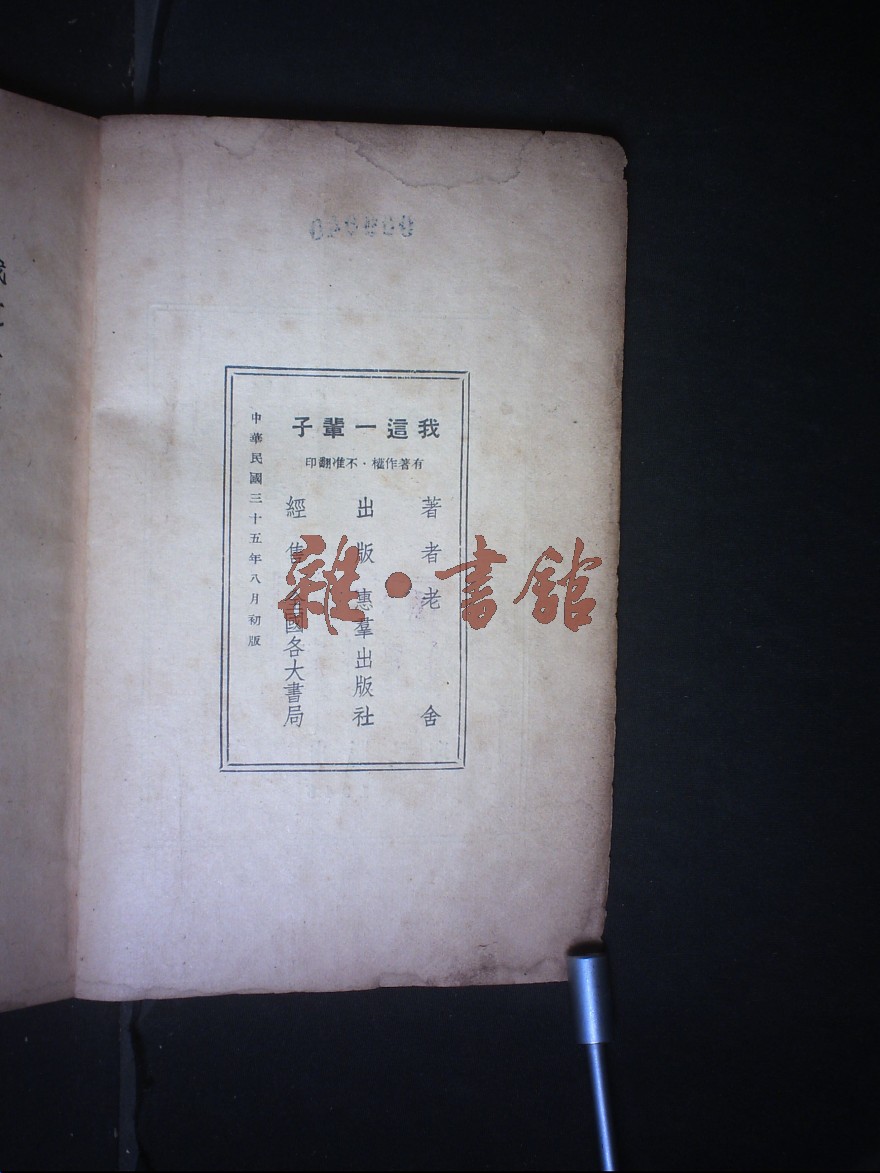 我這一輩子
有著作權・不准翻印
著者老舍
出版惠羣出版社
經售全國各大書局
中華民國三十五年八月初版
雜・書館